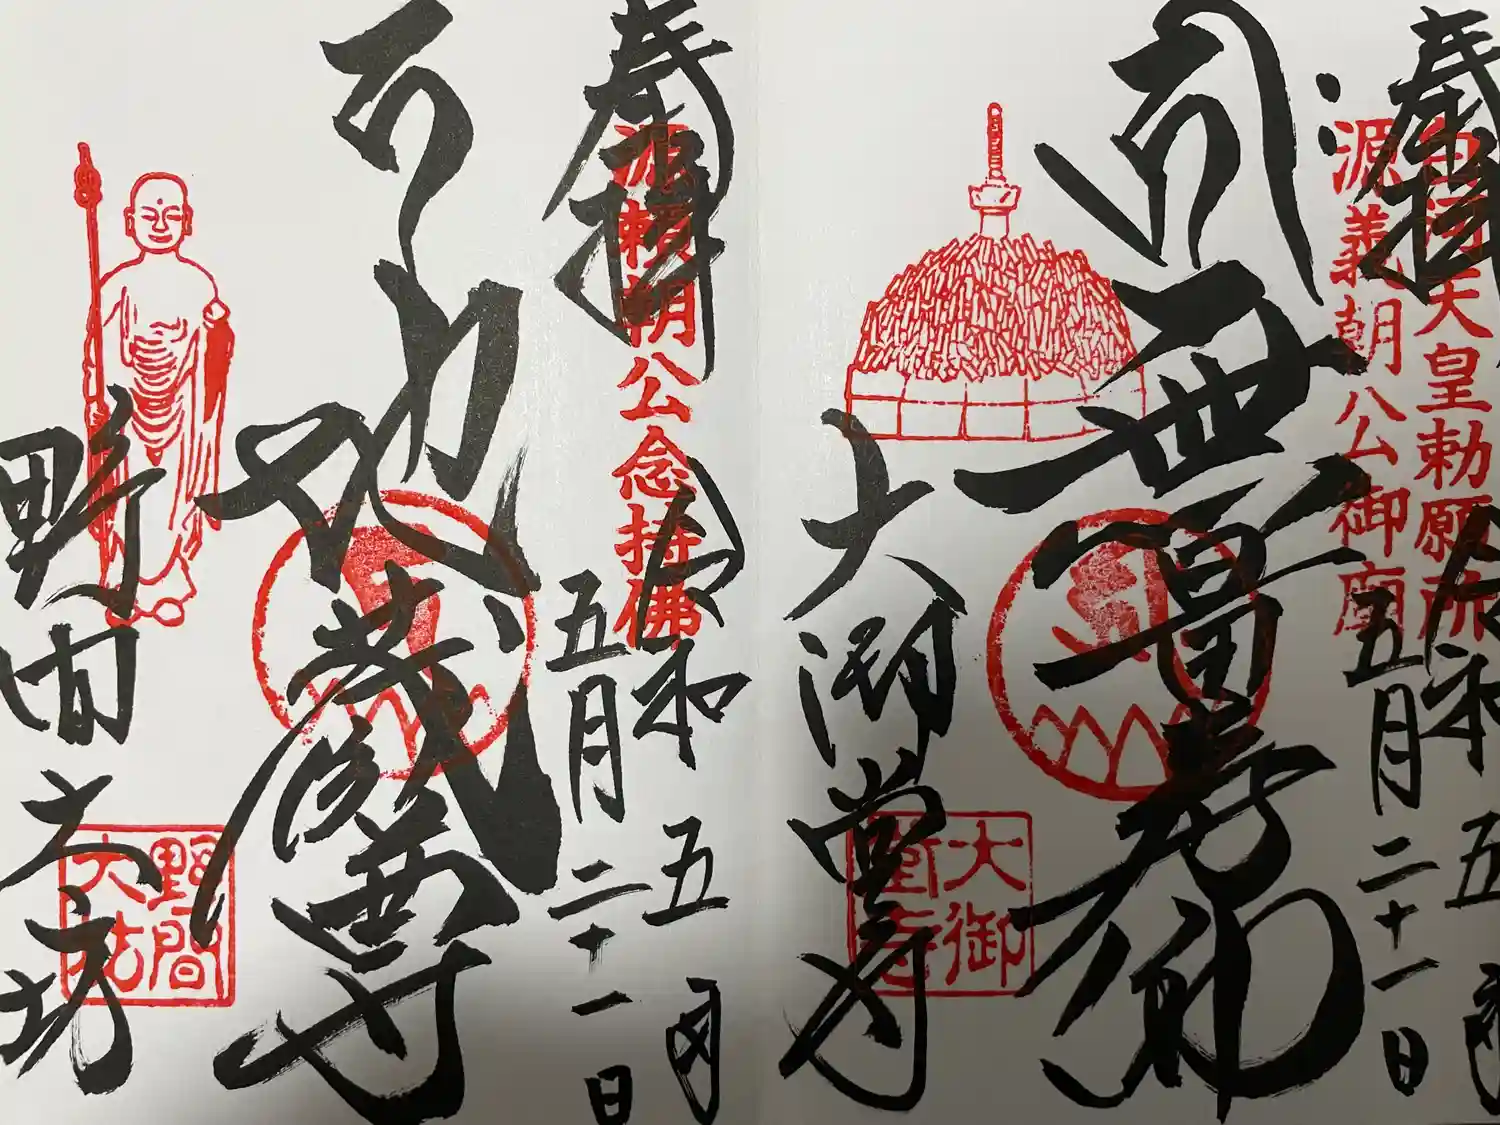 奉拝
白河天皇勅願所
源義朝公御廟
令和五年
五月二十一日
無量寿佛
大御堂寺
大御堂寺
奉拝
源頼朝公念持佛
令和五年
五月二十一日
地蔵尊
野间大坊
野間大坊